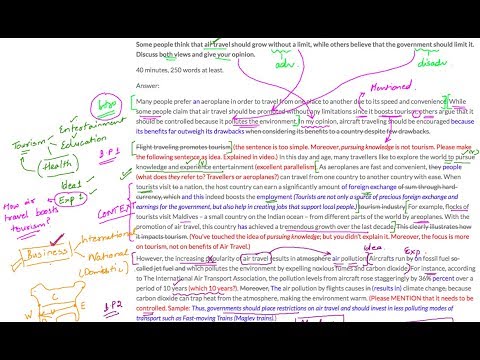 Some people think that air travel should grow without a limit, while others believe that the government should limit it.
Discuss both views and give your opinion.
adv.
disadv.
40 minutes, 250 words at least.
Answer:
Mentioned.
Intro
Many people prefer an aeroplane in order to travel from one place to another due to its speed and convenience. While
some people claim that air travel should be promoted without any limitations since it boosts tourism, others argue that it
should be controlled because it pollutes the environment. In my opinion, aircraft traveling should be encouraged because
its benefits far outweigh its drawbacks when considering its benefits to a country despite few drawbacks.
Tourism
Entertainment
Education
Health
BP1
Flight traveling promotes tourism (the sentence is too simple. Moreover, pursuing knowledge is not tourism. Please
make the following sentence as idea. Explained in video.) In this day and age, many travellers like to explore the world to pursue
knowledge and experience entertainment (excellent parallelism). As aeroplanes are fast and convenient, they people
(what does they refer to? Travellers or aeroplanes?) can travel from one country to another country with ease. When
tourists visit to a nation, the host country can earn a significant amount of foreign exchange of sum through hard-
currency, which and this indeed boosts the employment (Tourists are not only a source of precious foreign exchange and
earnings for the government, but also help in creating jobs that support local people.) tourism industry. For example, flocks of
tourists visit Maldives – a small country on the Indian ocean – from different parts of the world by aeroplanes. With the
promotion of air travel, this country has achieved a tremendous growth over the last decade. This clearly illustrates how
it impacts tourism. (You've touched the idea of pursuing knowledge; but you didn't explain it. Moreover, the focus is more
on tourism, not on benefits of Air Travel.)
Idea1
Exp
How air
travel boosts
tourism?
Business
International
National
(Domestic)
BP2
W
E
Idea
Exp
However, the increasing popularity of air travel results in atmosphere air pollution. Aircrafts run by on fossil fuel so
called jet fuel and which pollutes the environment by expelling noxious fumes and carbon dioxide. For instance, according
to The International Air Transport Association, the pollution from aircrafts stage exacerbated by 300 percent over a
period of 10 years (which 10 years?). Moreover, The air pollution by flights causes in (results in) climate change; because
carbon dioxide can trap heat from the atmosphere, making the environment warm. (Please MENTION that it needs to be
controlled. Sample: Thus, governments should place restrictions on air travel and should invest in less polluting modes of
transport such as Fast-moving Trains (Maglev trains).)